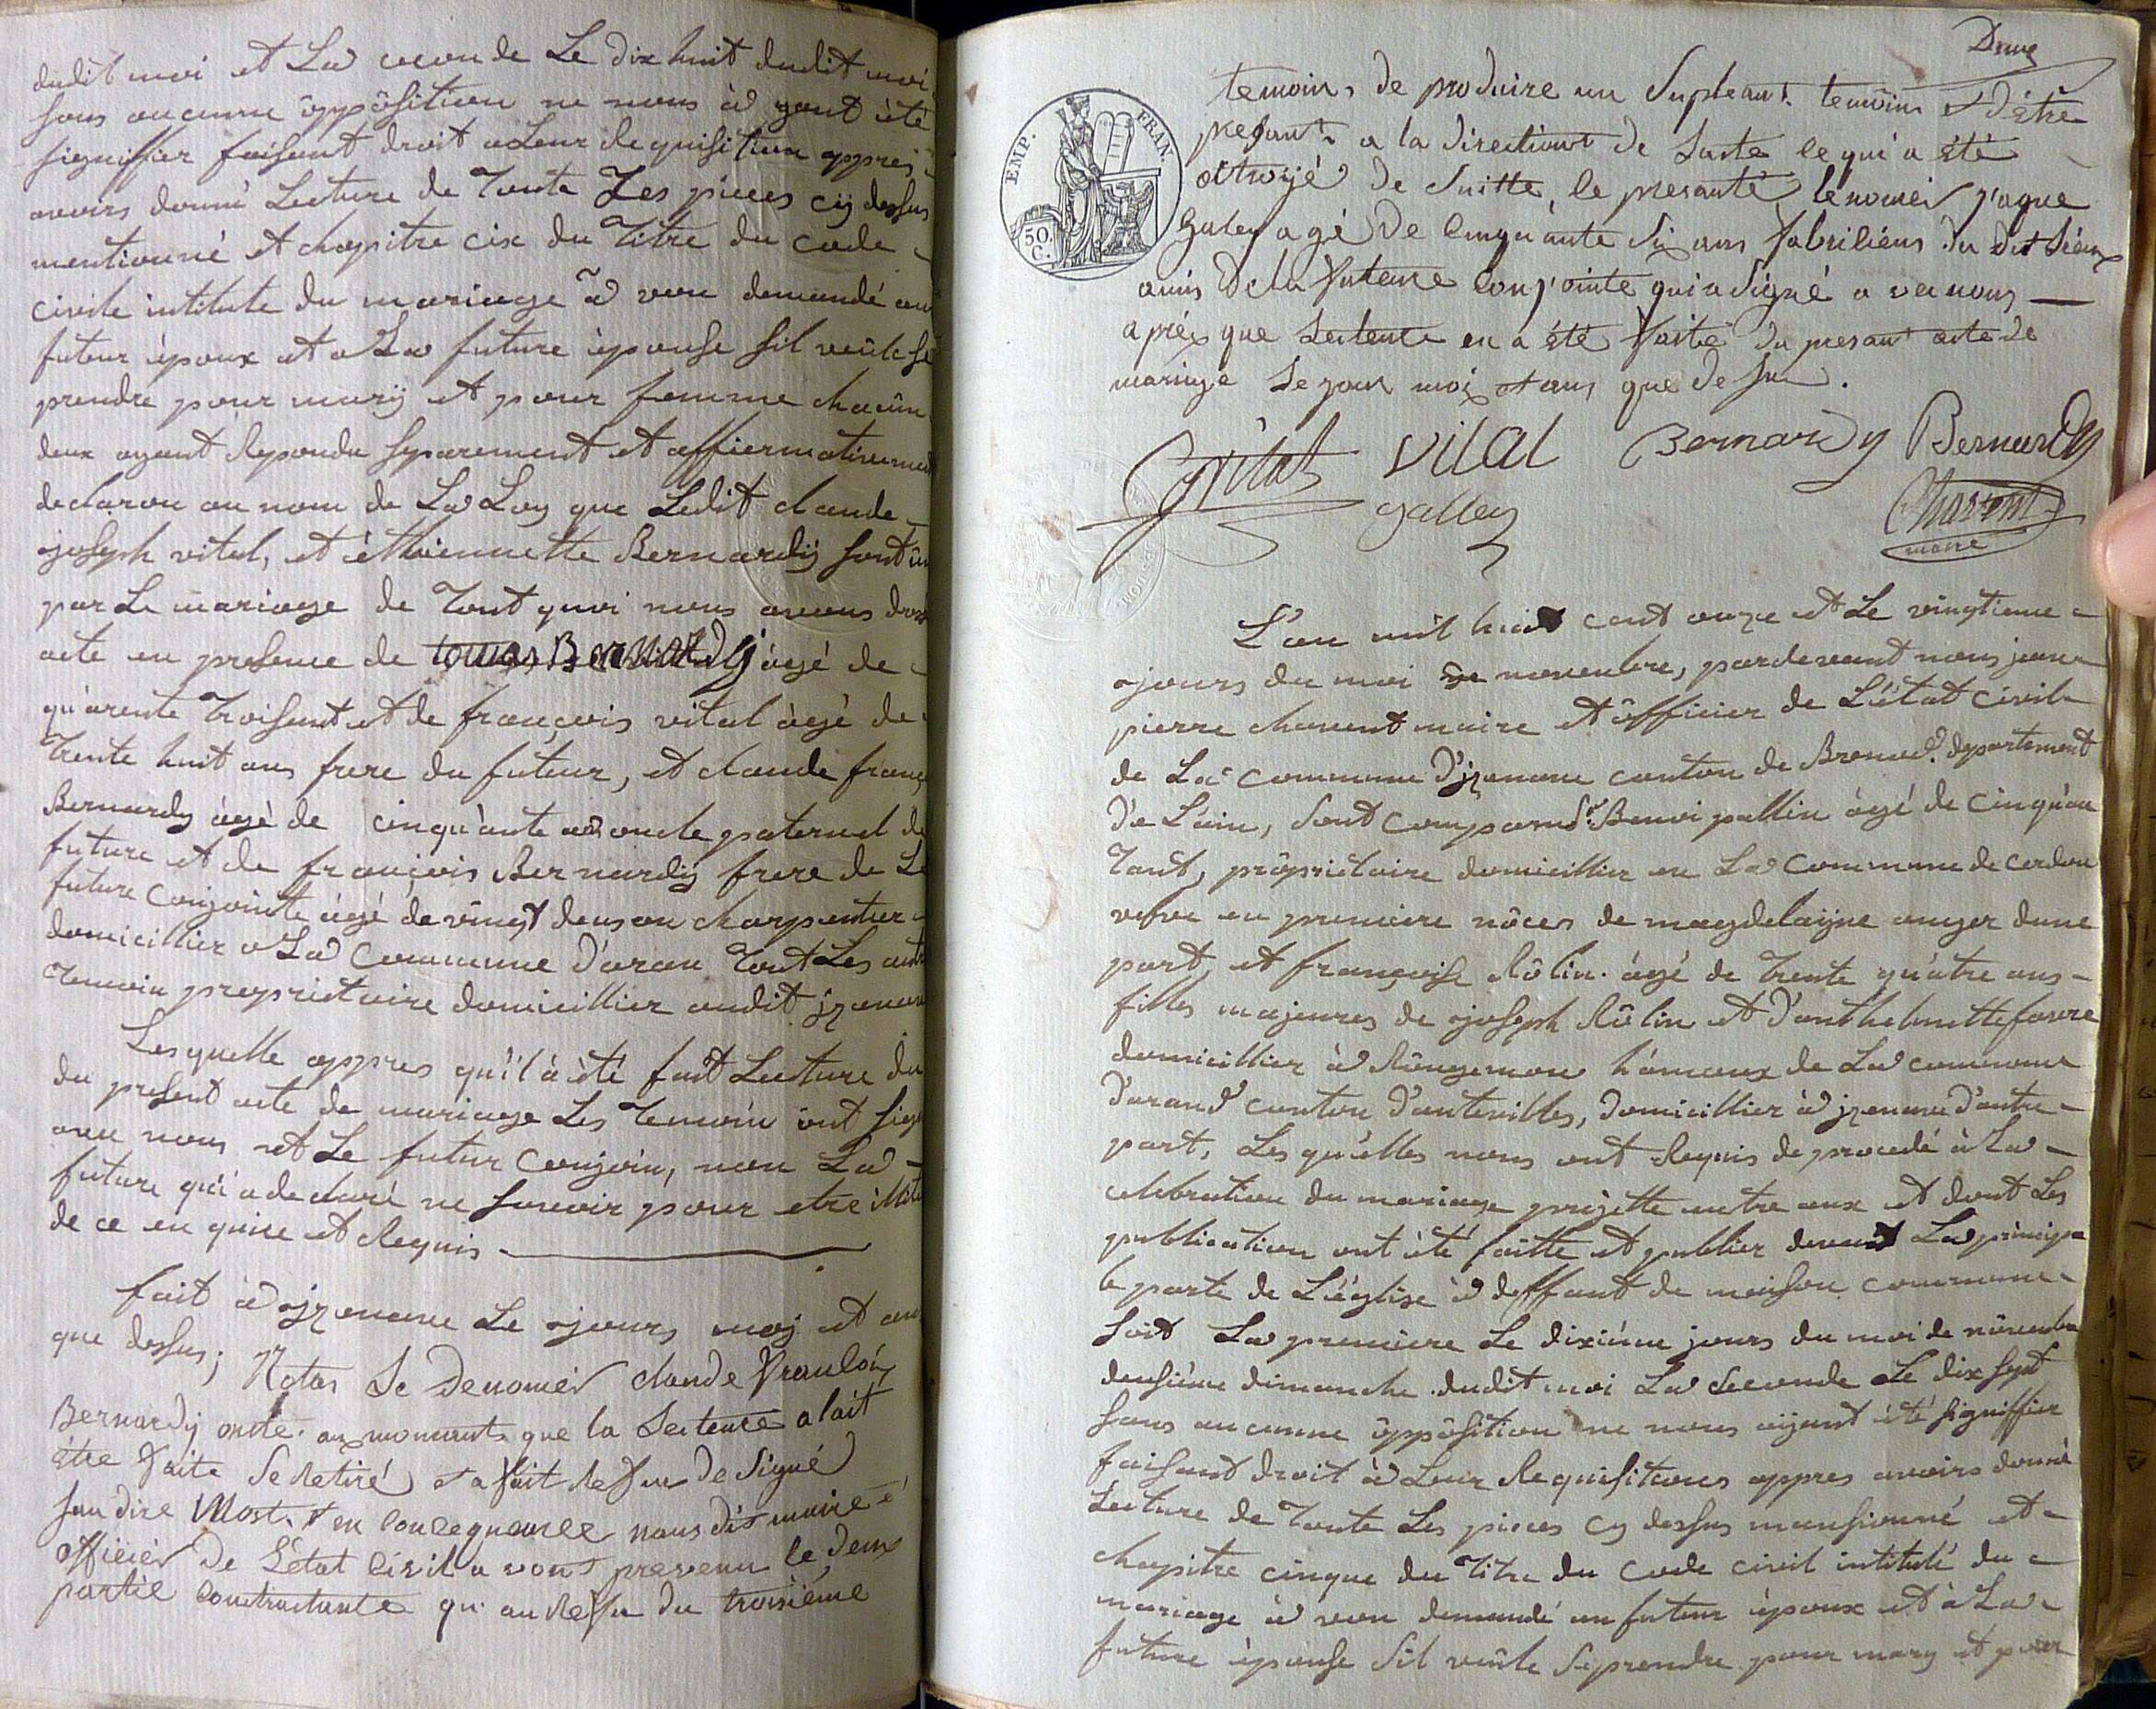 dudit moi et La seconde Le dix huit dudit moi
sans aucunne ôppôsition ne nous à yant été
signiffier faisant droit a Leur Requisition appres
avoirs donné Lecture de Toute Les pieces cij dessus
mentionné et chapitre cix du Titre du code
civile intitute du mariage à von demandé au
futeur époux et a La future épouse sil veûle se
prendre pour marÿ et pour femme chacûn
deux ayant Repondu separement et affiermativement
declaron au nom de La Loy que Ledit claude
joseph vital, et éthiennette Bernardÿ sont ûn
par Le mariage de Tout quoi nous avons dresé
acte en presence de tomas Bernardÿ âgé de
qu'arente Troisant et de françois vital âgé de
Trente huit ans frere du futeur, et claude franç
Bernardy âgé de cinqu'ante an oncle paternel de
future et de françois Bernardÿ frere de La
future Conjointe âgé de vingt deus an charpentier
domicillier a La Commune d'aran Tout Les autre
Temoin propriétaire domicillier audit jzenave
Lesquelle appres qu'il à été fait Lecture du
du present acte de mariage Les Temoin ont signé
avec nous et Le futur Conjoin, non La
future qu'i a declaré ne savoir pour etre illité
de ce enquise et Requis
fait à jzenave Le jours moj et an
que dessus; Notas Le Denomer claude Franloiy
Bernardÿ oncle au moments que la Lecteure alait
être Faite Se Retiré et a fait Refus de Signé
san dire Most. & en Conceqneance nous dit maire é
officier De L'état Civil a vons prevenu le deux
partie Contractante qu au Refu du troisiéme
Douze
temoins de produire un Supleant temoins & D'être
presant a la directiont de Lacte ce qui a été
octroyé De Suitte, le presanté lenomer j'aque
Galley agé De Cinquante Six ans Fabriliens du dit Liéux
amis De la Future Conj'ointe qui a Signé a vec nous
aprés que Lecteute en a été Faite du presant acte de
mariage Le jour mois et ans que de su.
EMP. FRAN.
50.
C.
Vital Bernardy Bernardy
galley
Charvent
maire
L'an mil huit cent onze et Le vingtieme
jours du moi de novembre, pardevant nous jean
pierre charvent maire et ôfficier de L'état Civil
de La Commune D'jzenave canton de Brenod departement
De L'ain, Sont Comparus Benoi pallin âgé de cinqu'an
Tant, prôpriétaire domicillier en La Commune de cerdon
vefve en premiere nôces de magdelaijne auger dune
part, et françoise Rôlin âgé de Trente qu'atre ans
filles majeures de joseph Rôlin et D'anthelmette favre
domicillier à Rôugemon hâmeaux de La commune
D'arand canton D'antevilles, domicillier à jzenave D'autre
part, Lesqu'elles nous ont Requis de procedé à La
celebration du mariage projette entre eux et dont Les
publication ont été faitte et publier devant La principa
le porte de L'église à deffaut de maison commune
Soit La premiere Le dixiéme jours du moi de nôvembre
deusiéme dimanche dudit moi La Seconde Le dix sept
sans aucunne ôppôsition ne nous aijant été signiffier
faisant droit à Leur Requisitions appres avoirs donné
Lecture de Toute Les pieces cy dessus mansionné et
chapitre cinque du Titre du Code civil intitulé du
mariage à von demandé au futeur époux et à La
future épouse Sil veûle Se prendre pour mary et pour